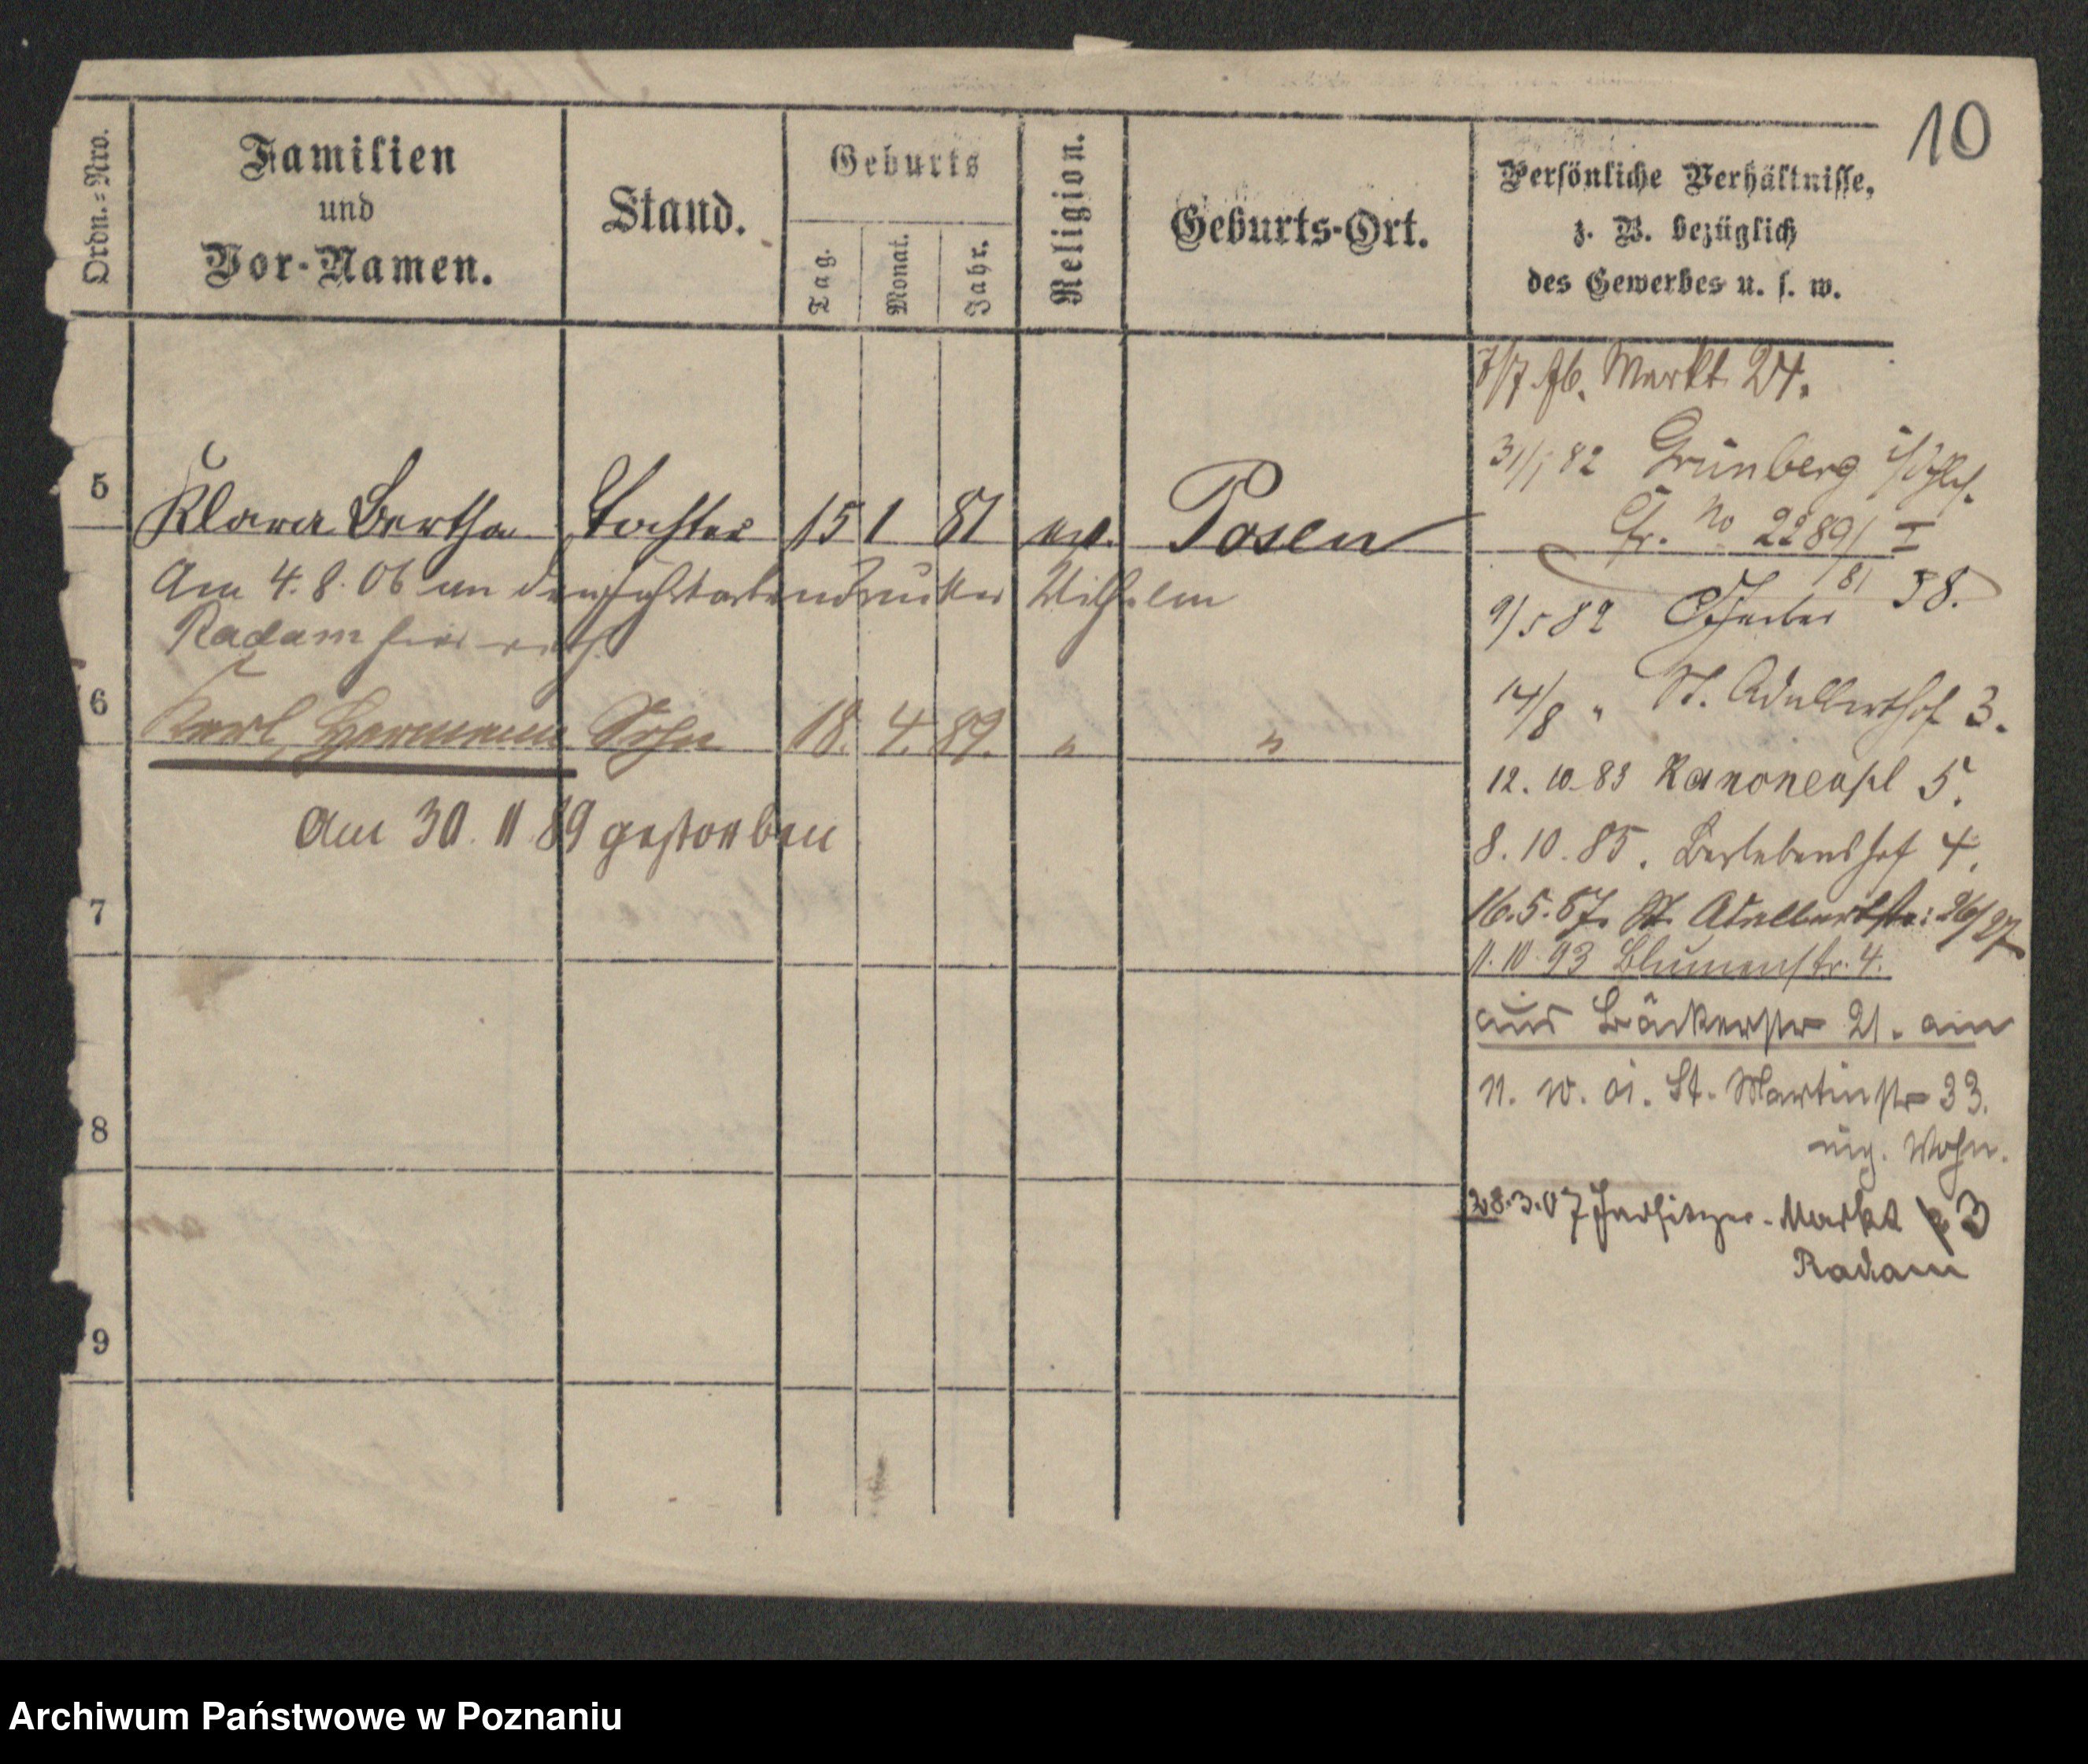 10
Ordn.=Nro.
Familien
und
Vor-Namen.
Stand.
Geburts
Tag.
Monat.
Jahr.
Religion.
Geburts-Ort.
Persönliche Verhältnisse,
z. B. bezüglich
des Gewerbes u. s. w.
Markt 24.
5 Klara Bertha Tochter 15 1 81 ev. Posen
Am 4. 8. 06 an den Wilhelm
Radam hier verh.
6 Karl Hermann Sohn 18. 4. 89. " "
Am 30. 11 89 gestorben
7
8
9
31/1 82 Grünberg i/Schles.
No 2289/ I
81
9/5 82 38.
14/8 " St. Adalberthof 3.
12. 10. 83 Kanonenpl 5.
8. 10. 85. 4.
16. 5. 87. St. Adalbertstr: 26/27
11. 10. 93 Blumenstr. 4.
aus Bäckerstr 21. am
11. 10. 01. St. Martinstr 33.
Wohn.
28. 3. 07 Markt 3
Radam
Archiwum Państwowe w Poznaniu